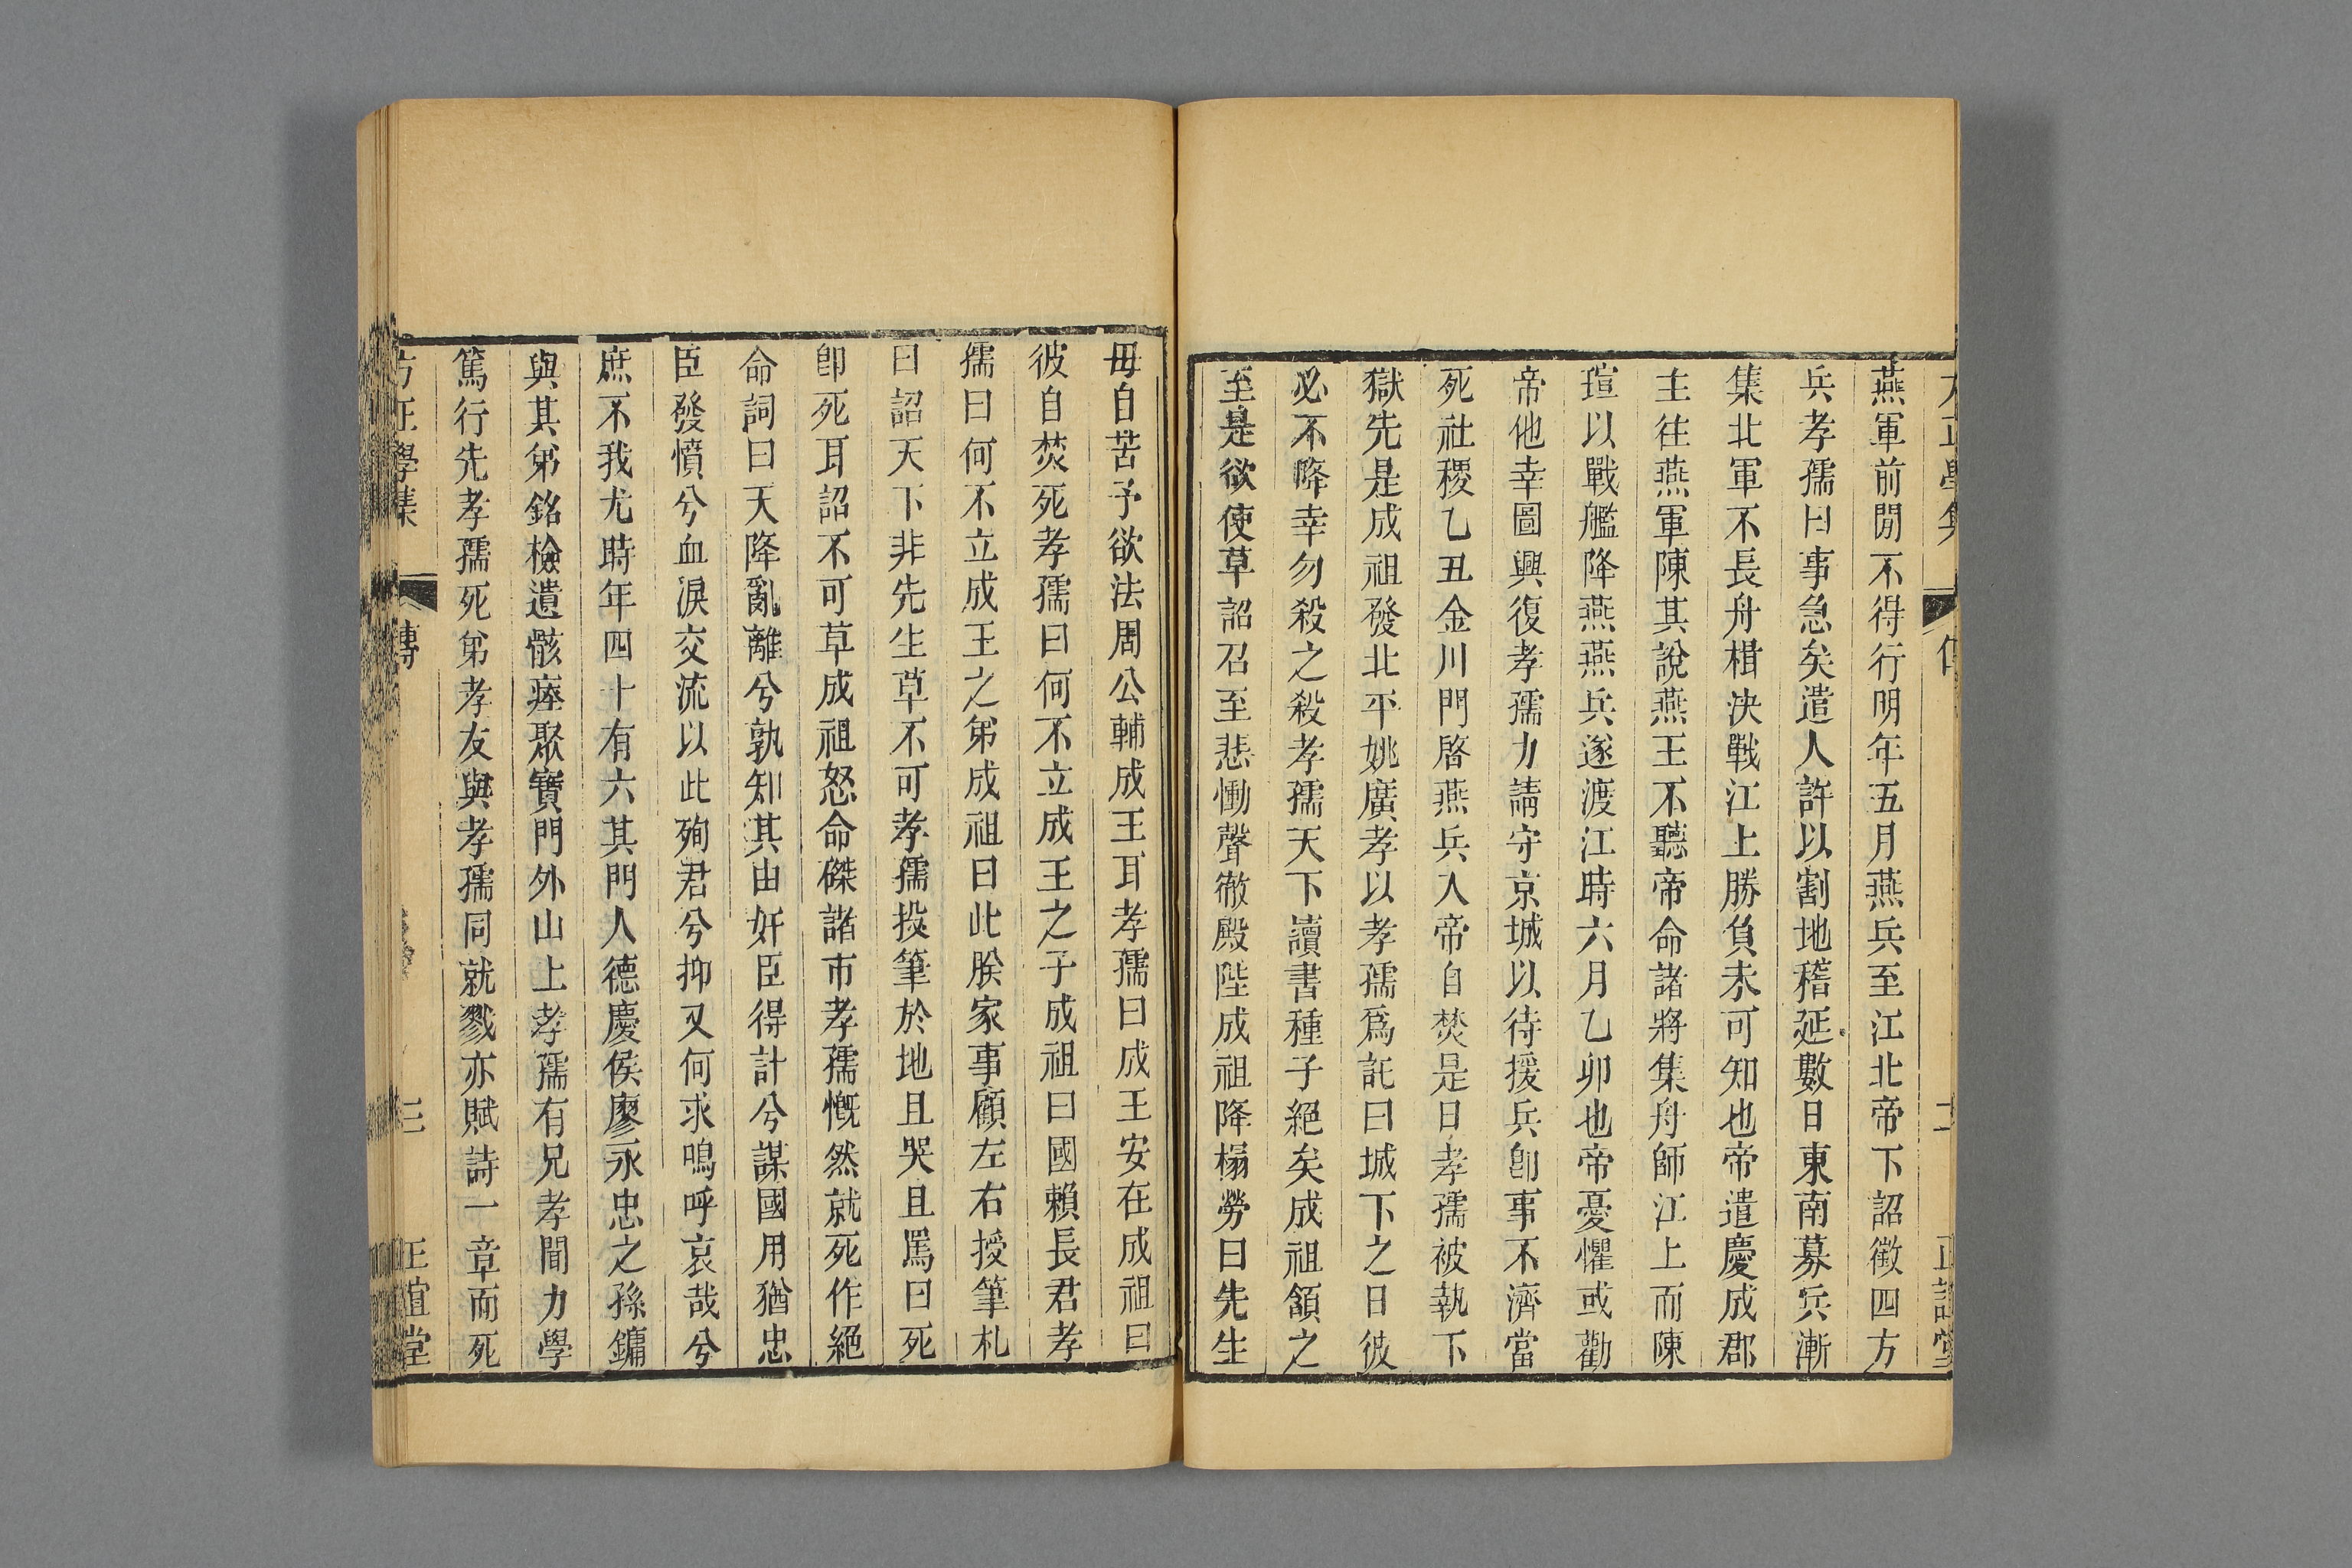 燕軍前閒不得行明年五月燕兵至江北帝下詔徵四方
兵孝孺曰事急矣遣人許以割地稽延數日東南募兵漸
集北軍不長舟楫決戰江上勝負未可知也帝遣慶成郡
主往燕軍陳其說燕王不聽帝命諸將集舟師江上而陳
瑄以戰艦降燕燕兵遂渡江時六月乙卯也帝憂懼或勸
帝他幸圖興復孝孺力請守京城以待援兵卽事不濟當
死社稷乙丑金川門啓燕兵入帝自焚是日孝孺被執下
獄先是成祖發北平姚廣孝以孝孺爲託曰城下之日彼
必不降幸勿殺之殺孝孺天下讀書種子絕矣成祖頷之
至是欲使草詔召至悲慟聲徹殿陛成祖降榻勞曰先生
毋自苦予欲法周公輔成王耳孝孺曰成王安在成祖曰
彼自焚死孝孺曰何不立成王之子成祖曰國賴長君孝
孺曰何不立成王之弟成祖曰此朕家事顧左右授筆札
曰詔天下非先生草不可孝孺投筆於地且哭且罵曰死
卽死耳詔不可草成祖怒命磔諸市孝孺慨然就死作絕
命詞曰天降亂離兮孰知其由奸臣得計兮謀國用猶忠
臣發憤兮血淚交流以此殉君兮抑又何求嗚呼哀哉兮
庶不我尤時年四十有六其門人德慶侯廖永忠之孫鏞
與其弟銘檢遺骸瘞聚寶門外山上孝孺有兄孝聞力學
篤行先孝孺死弟孝友與孝孺同就戮亦賦詩一章而死
方正學集 傳 三 正誼堂